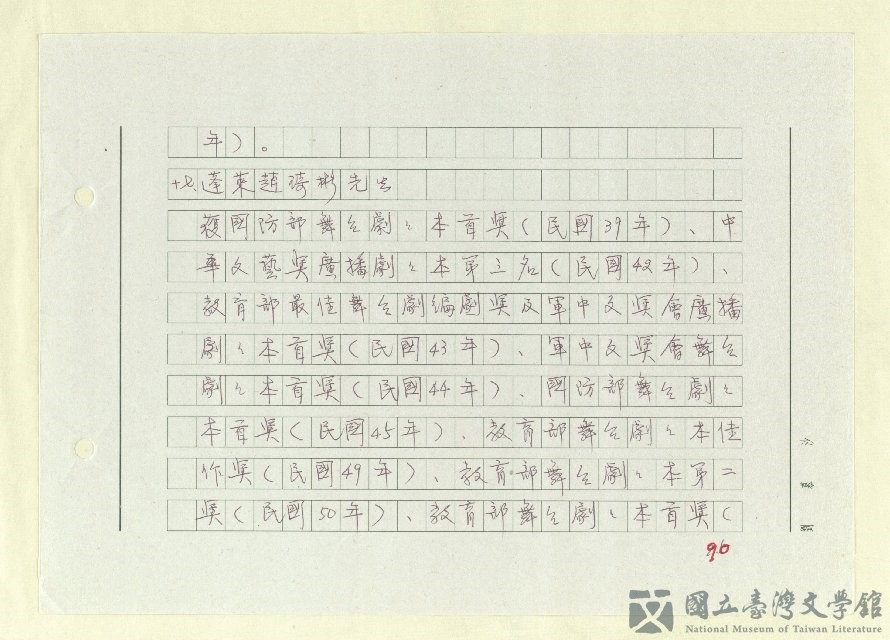 年）。
十七、蓬萊趙琦彬先生
獲國防部舞台劇劇本首獎（民國39年）、中
華文藝獎廣播劇劇本第三名（民國42年）、
教育部最佳舞台劇編劇獎及軍中文獎會廣播
劇劇本首獎（民國43年）、軍中文獎會舞台
劇劇本首獎（民國44年）、國防部舞台劇劇
本首獎（民國45年）、教育部舞台劇劇本佳
作獎（民國49年）、教育部舞台劇劇本第二
獎（民國50年）、教育部舞台劇劇本首獎（
96
國立臺灣文學館
National Museum of Taiwan Literature